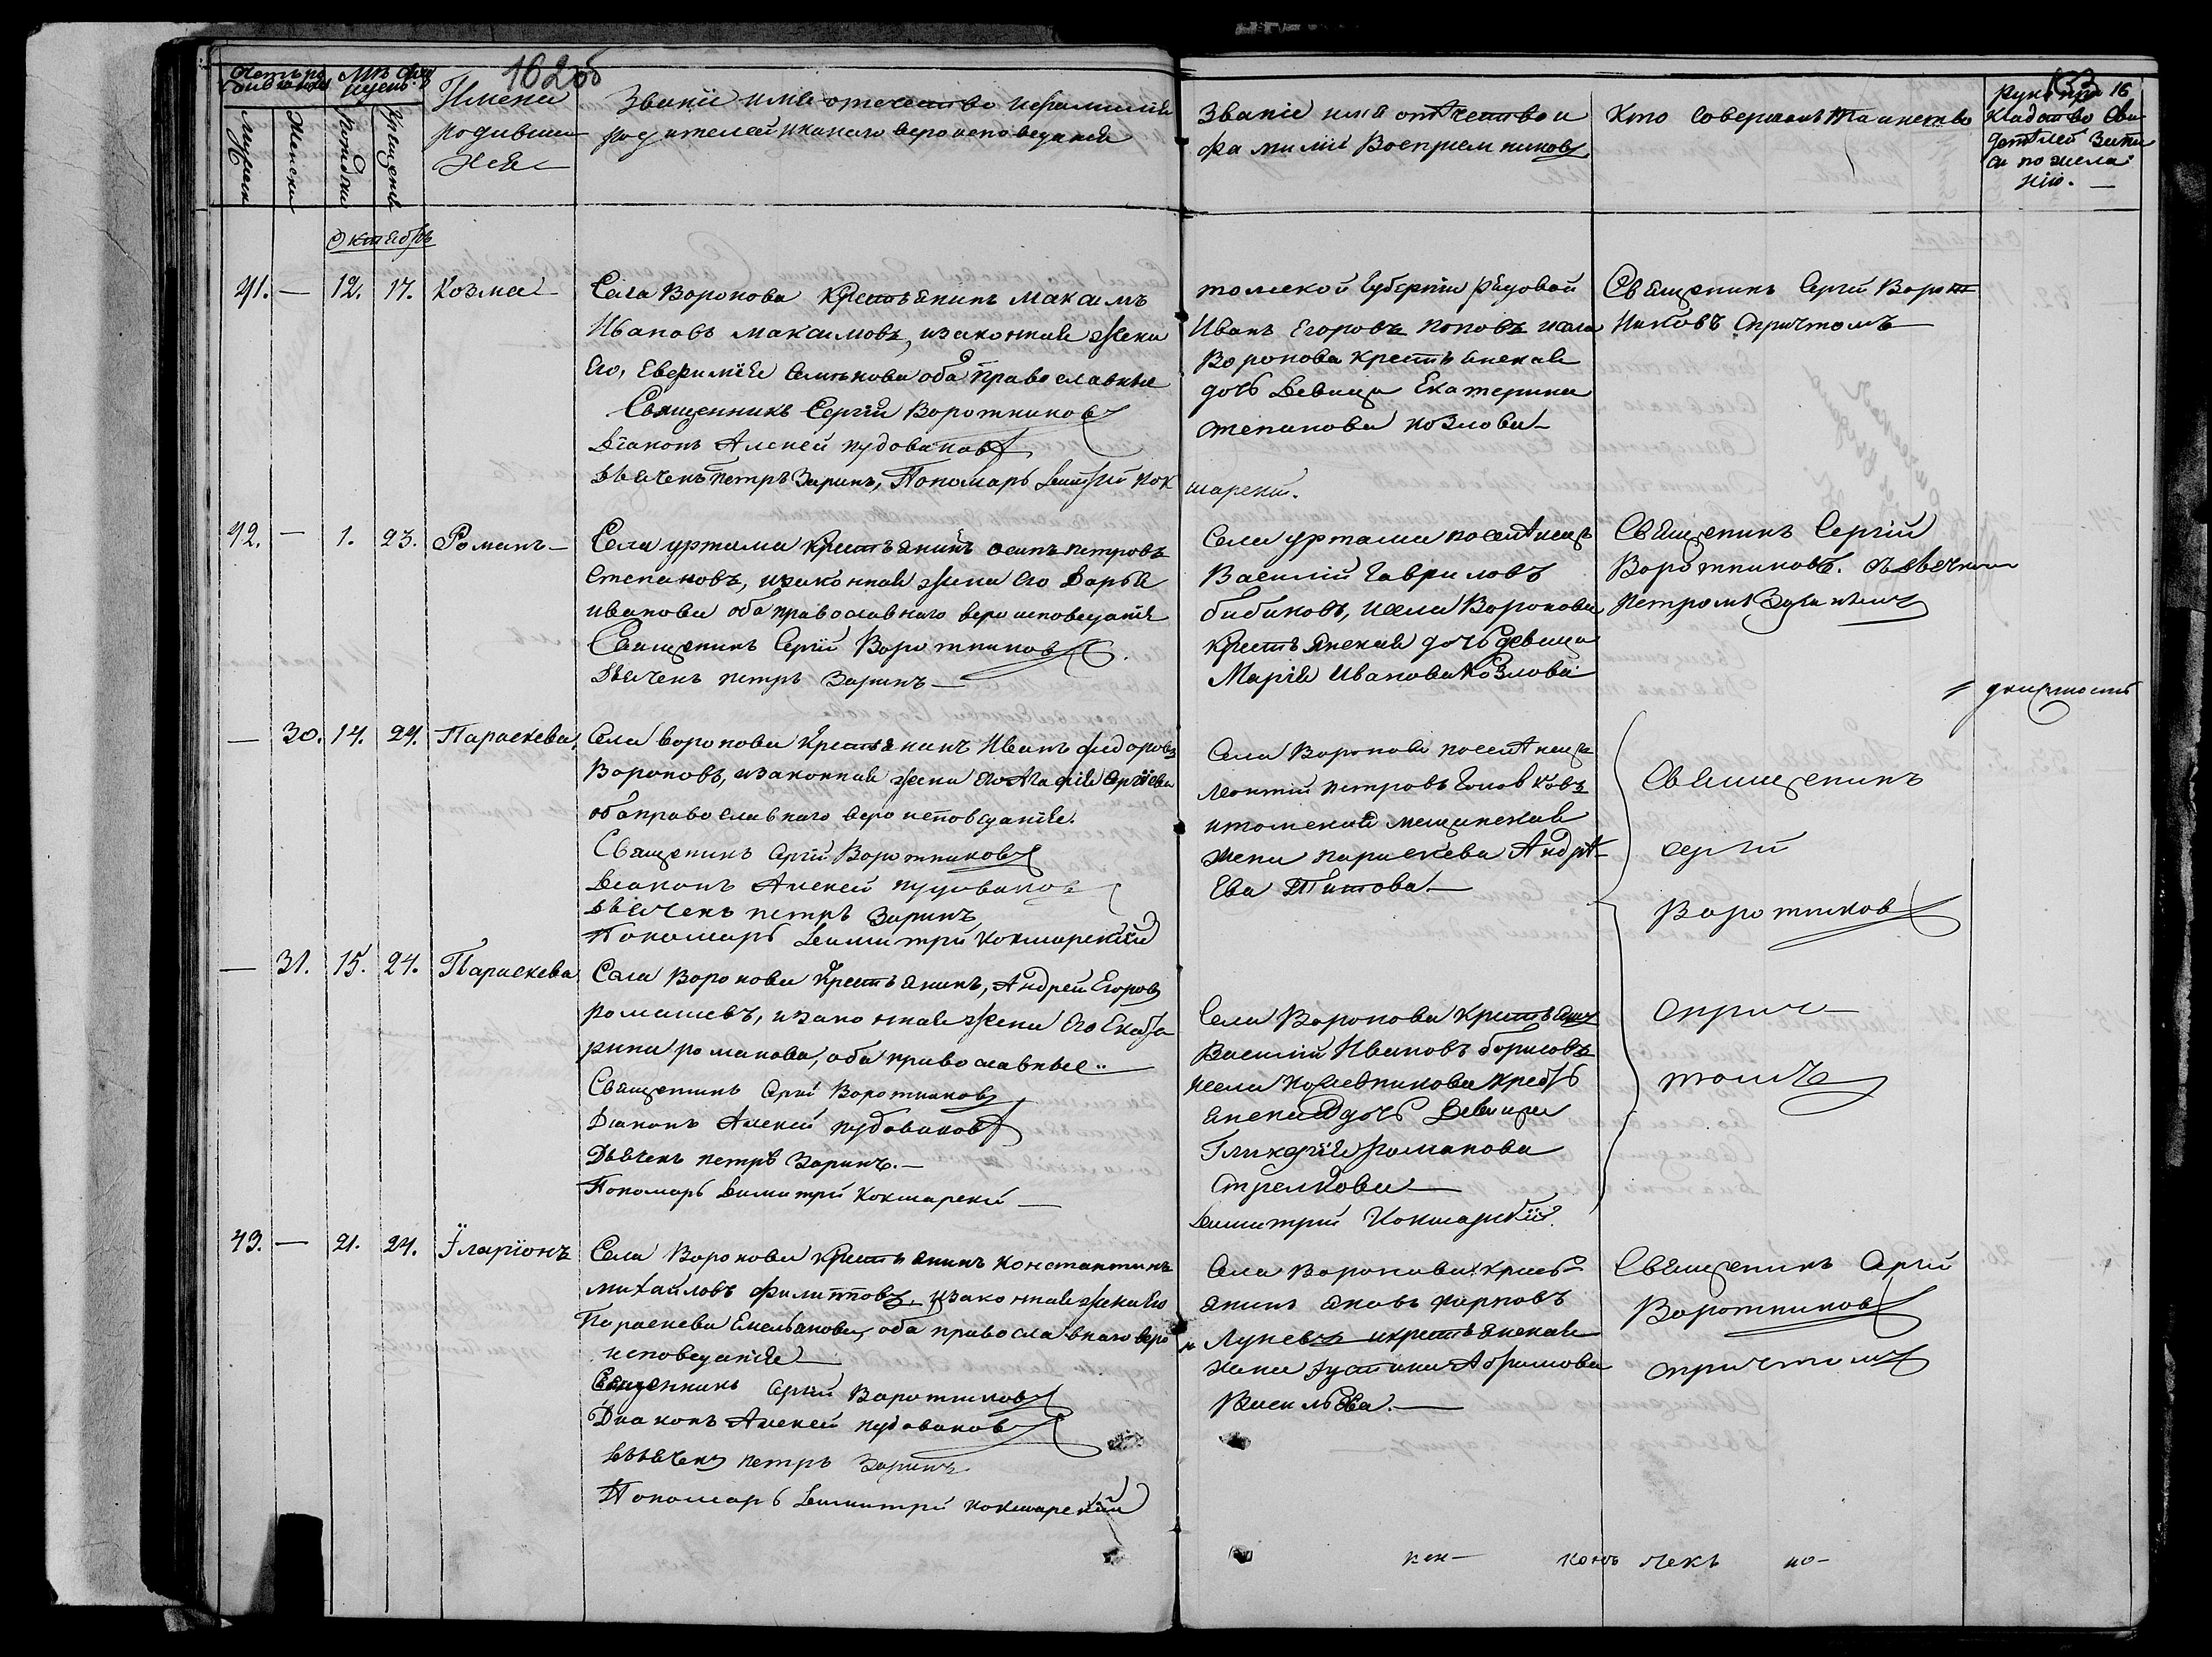 162об
Имена
родивши
хся
Званіе имя отечество и фамилия
родителей и какаго вероисповеданія
Званіе имя отчество и
фамиліи Воспріемниковъ
Кто совершалъ Таинство
Рукопри
кладство сви
детелей записи
по жела
нію.
Мужеск
Женски
рожденія
крещенія
Октябрь
41. — 12. 17. Козма
Села Воронова Крестьянинъ Максимъ
Ивановъ Максимовъ, изаконная жена
Его, Евфимія оба Православные
Священникъ Сергій Воротниковъ
Діаконъ Алексей Пудовиковъ
Дьячекъ Петръ Заринъ, Пономарь Димитрій Кок
шарскій.
томской Губерніи рядовой
Иванъ Егоровъ Поповъ и села
Воронова крестьянская
дочь Девица Екатерина
Степанова Козлова
Священникъ Сергій Ворот
никовъ спричтомъ
42. — 1. 23. Романъ
Села Уртама Крестьянинъ Осипъ Петровъ
Степановъ, изаконная жена его Дарья
Иванова оба православнаго вероисповеданія
Священникъ Сергій Воротниковъ
Дьячекъ Петръ Заринъ
Села Уртама поселянецъ
Василій Гавриловъ
бибиковъ, и села Воронова
Крестьянская дочь девица
Марія Иванова Козлова
Священникъ Сергій
Воротниковъ. съ дьячкомъ
Петромъ
— 30. 14. 24. Параскева,
Села Воронова Крестьянинъ Иванъ Федоровъ
Вороновъ, изаконная жена его Агафія Сергіева
оба православнаго вероисповеданія.
Священникъ Сергій Воротниковъ
Діаконъ Алексей Пудовиковъ
Дьячекъ Петръ Заринъ
Пономарь Димитрій Кокшарскій
Села Воронова
Леонтій Петровъ
и томская мещанская
жена параскева Андре
ева Титова
Священникъ
Сергій
Воротниковъ
— 31. 15. 24. Параскева
Села Воронова Крестьянинъ, Андрей Егоровъ
Ромашевъ, изаконная жена Его Екате
рина романова, оба православные
Священникъ Сергій Воротниковъ
Діаконъ Алексей Пудовиковъ
Дьячекъ Петръ Заринъ.
Пономарь Димитрій Кокшарскій
Села Воронова Крестьянинъ
Василій Ивановъ борисовъ
и села кресть
янская дочь Девица
Гликерія Романова
Стрелкова
Димитрій Кокшарскій.
сприч
томъ
43. — 21. 24. Иларіонъ
Села Воронова Крестьянинъ Константинъ
Михайловъ Филипповъ, изаконная жена Его
Параскева Емельянова, оба православнаго веро
исповеданія
Священникъ Сергій Воротниковъ
Діаконъ Алексей Пудовиковъ
Дьячекъ Петръ Заринъ
Пономарь Димитрій Кокшарскій
Села Воронова кресть
янинъ Яковъ Карповъ
Луневъ и крестьянская
жена Абрамова
Васильева.
Священникъ Сергій
Воротниковъ
спричтомъ